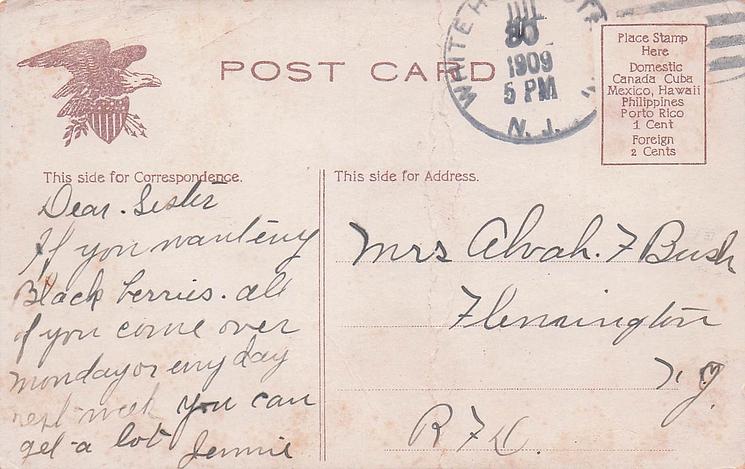 POST CARD
WHITE HOUSE
JUL
30
1909
5 PM
N. J.
Place Stamp
Here
Domestic
Canada Cuba
Mexico, Hawaii
Philippines
Porto Rico
1 Cent
Foreign
2 Cents
This side for Correspondence.
This side for Address.
Dear. Sister
If you want eny
Black berries. all
of you come over
monday or eny day
next week you can
get a lot Jennie
Mrs Alvah. F Bush
Flemington
N. J.
R F D.